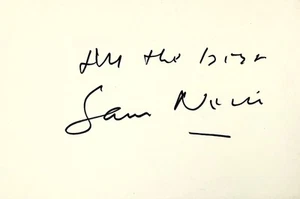 All the best
Sam Neill